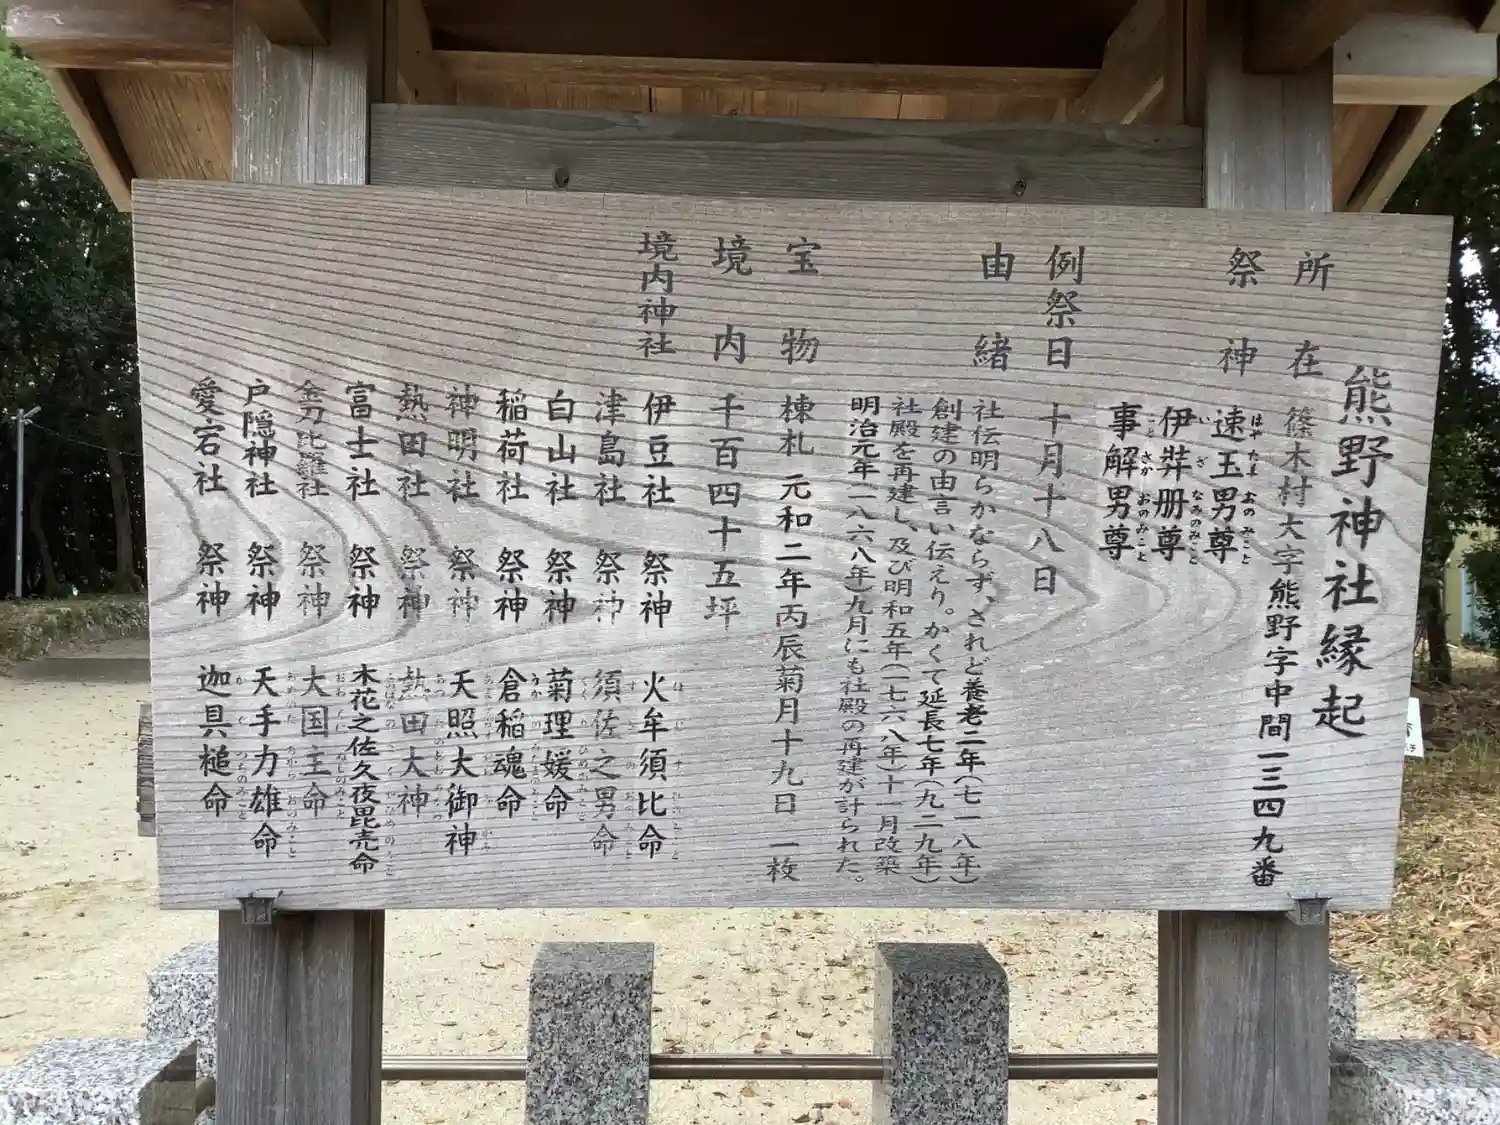 熊野神社縁起
所在 篠木村大字熊野字中間一三四九番
祭神 速玉男尊
はやたまおのみこと
伊弉册尊
いざなみのみこと
事解男尊
ことさかおのみこと
例祭日 十月十八日
由緒 社伝明らかならず、されど養老二年(七一八年)
創建の由言い伝えり。かくて延長七年(九二九年)
社殿を再建し、及び明和五年(一七六八年)十一月改築
明治元年(一八六八年)九月にも社殿の再建が計られた。
宝物 棟札 元和二年丙辰菊月十九日 一枚
境内 千百四十五坪
境内神社 伊豆社 祭神 火牟須比命
津島社 祭神 須佐之男命
白山社 祭神 菊理媛命
稲荷社 祭神 倉稲魂命
神明社 祭神 天照大御神
熱田社 祭神 熱田大神
富士社 祭神 木花之佐久夜毘売命
金刀比羅社 祭神 大国主命
戸隠神社 祭神 天手力雄命
愛宕社 祭神 迦具槌命